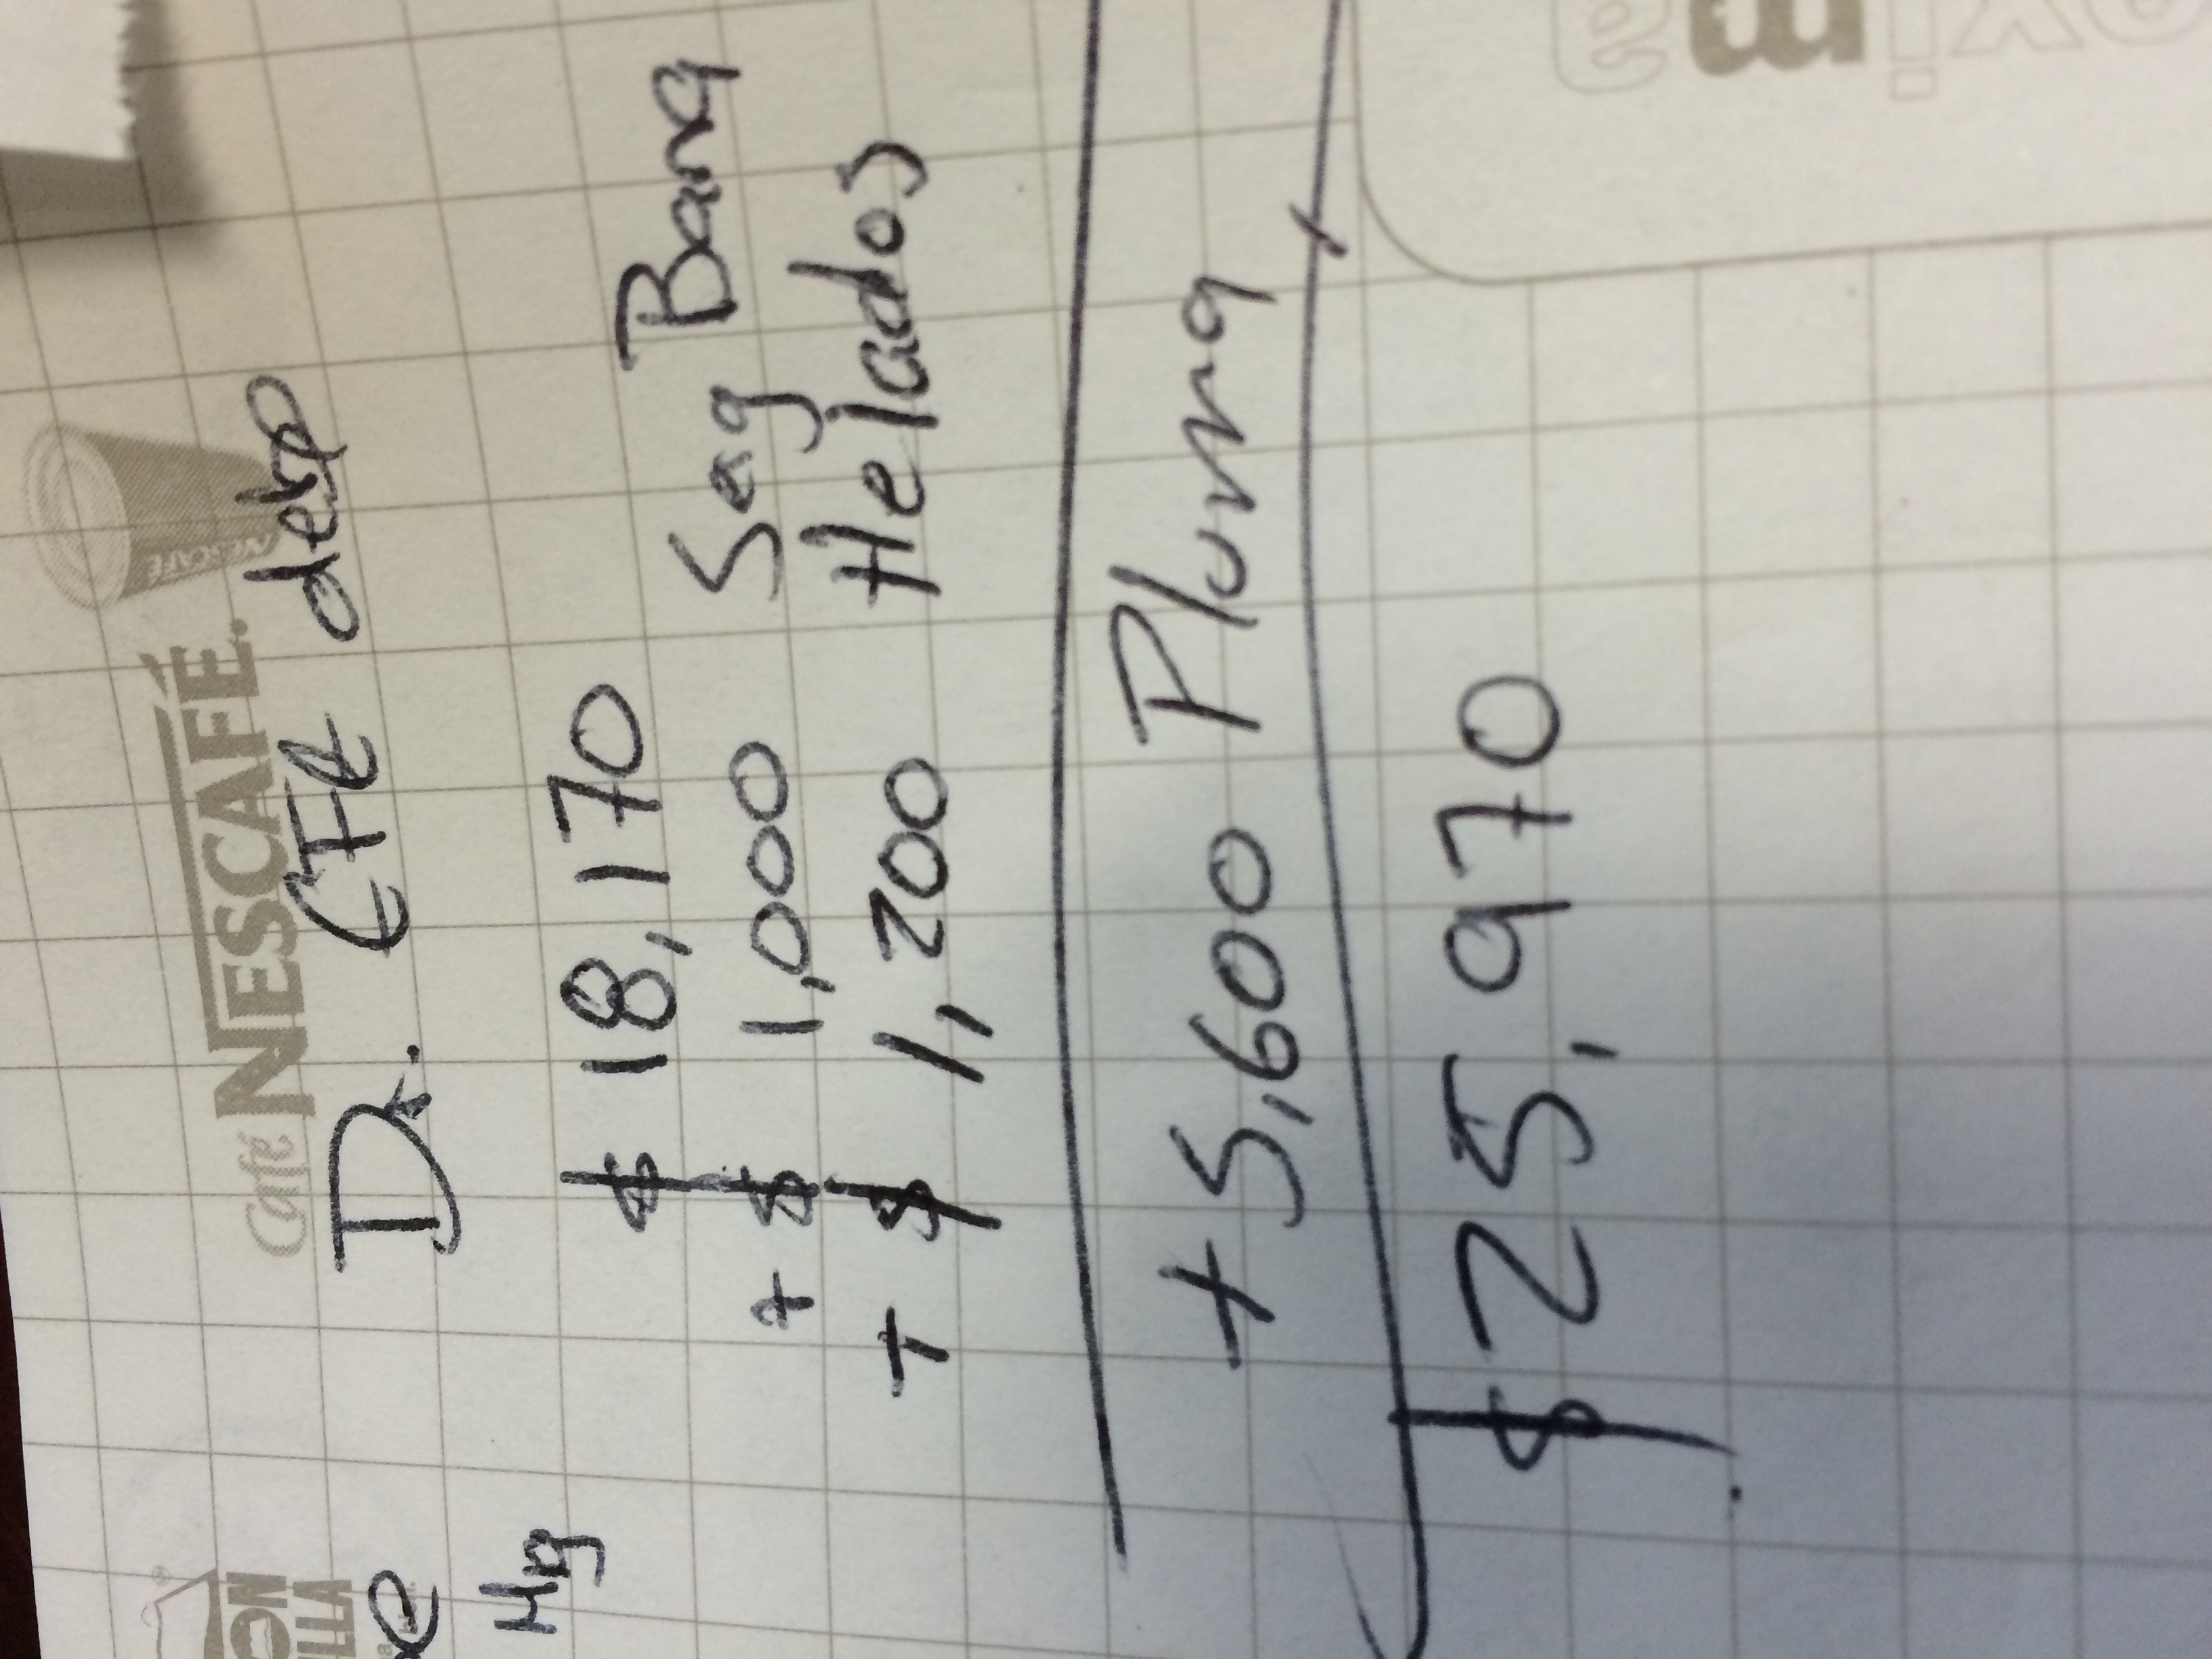 ON
LLA
Café NESCAFÉ.
NESCAFÉ
Dr. EFE debo
e
Mg
$ 18,170
+ $ 1,000 Seg Bana
+ $ 1,200 Helados
+ 5,600 Pluma
$ 25,970
oxima